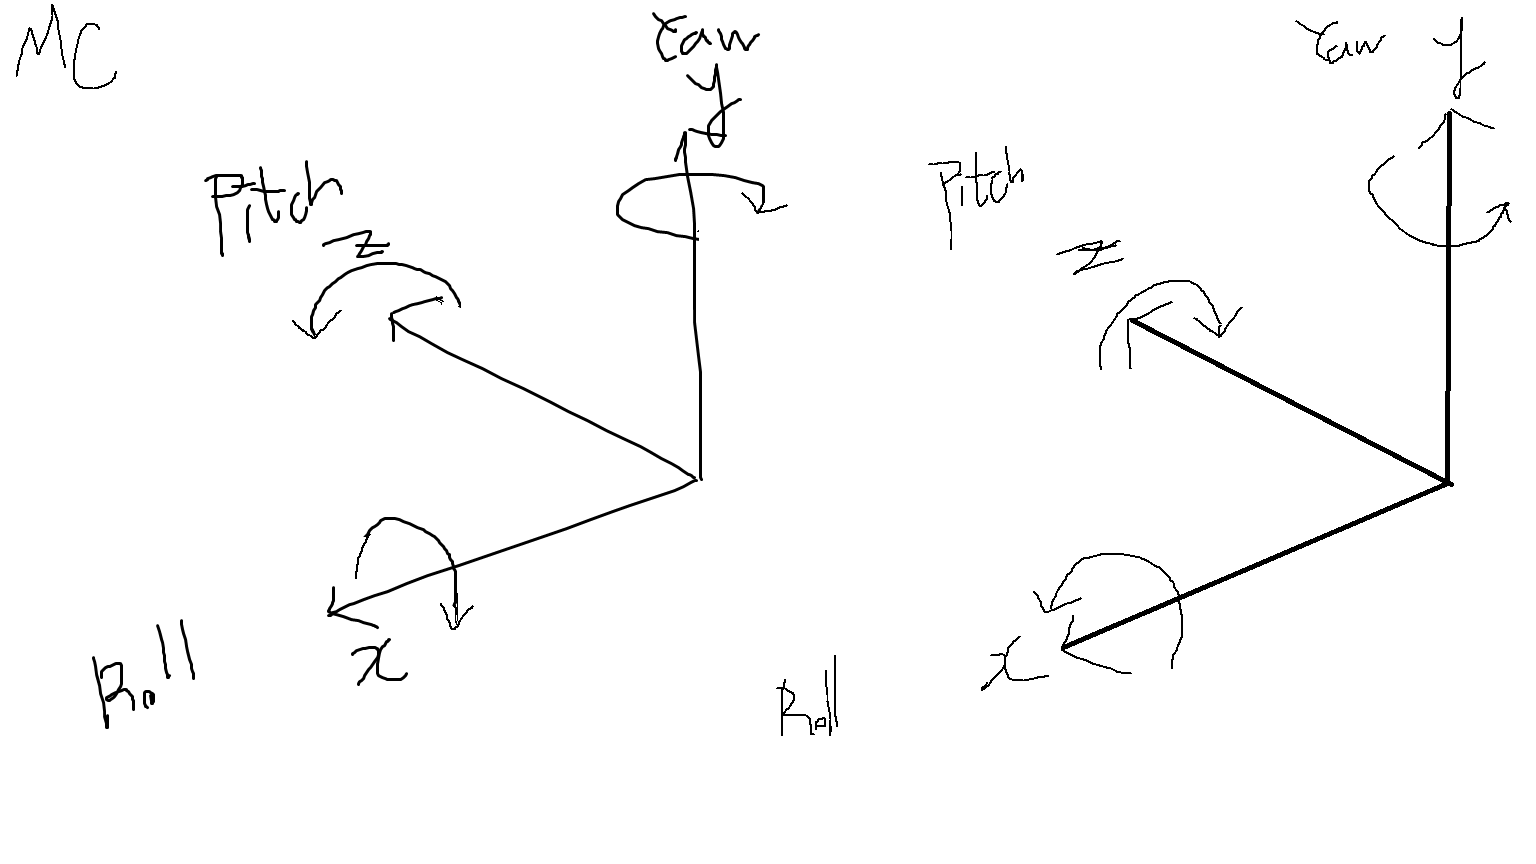 MC
Yaw
y
Pitch
z
x
Roll
Yaw y
Pitch
z
x
Roll